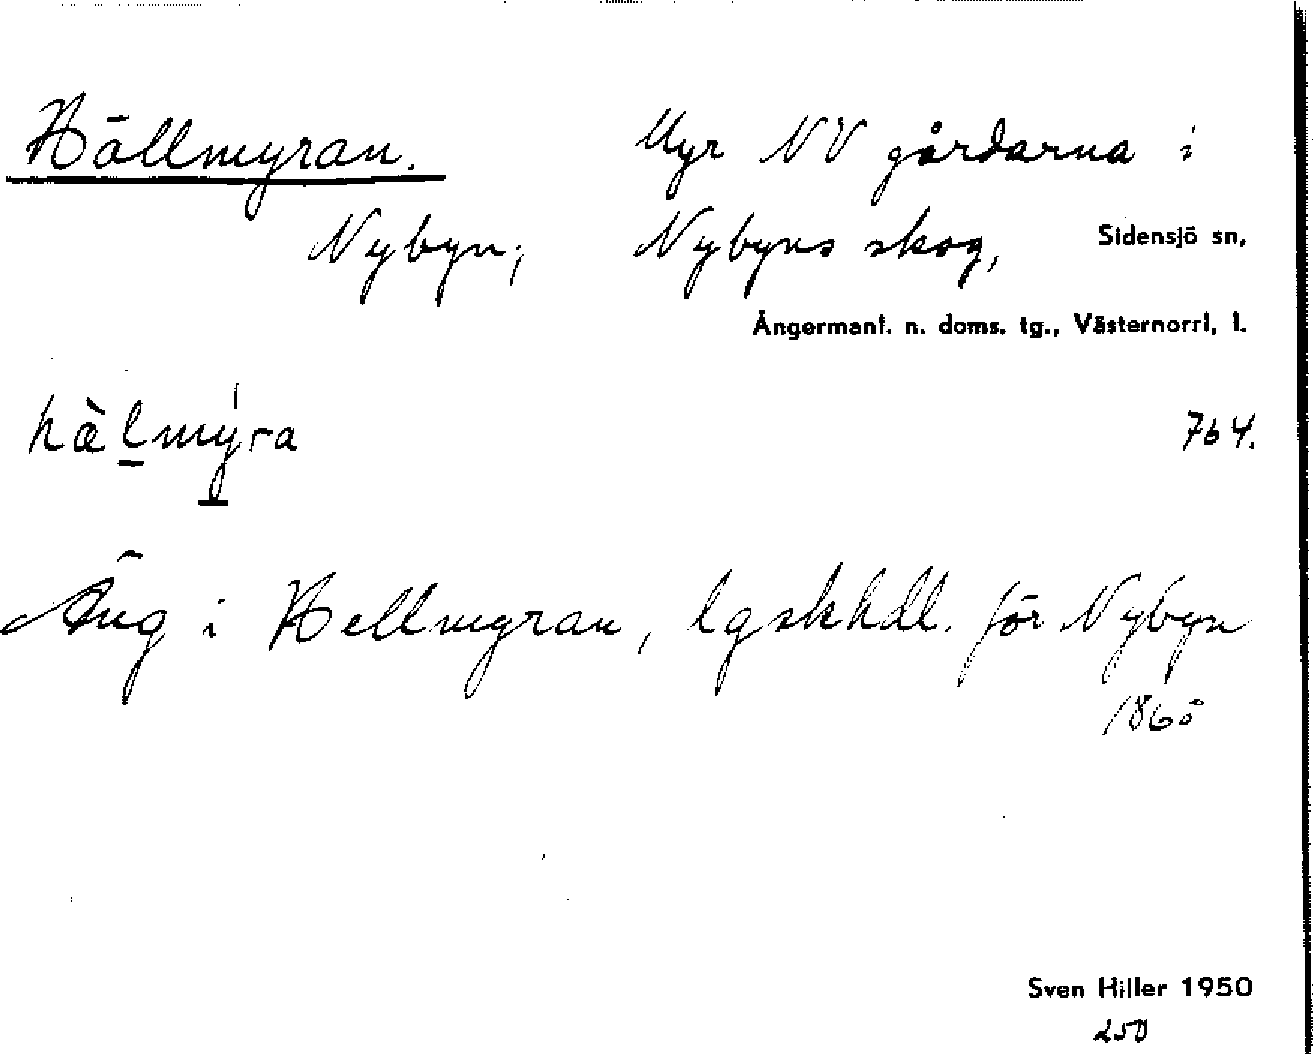 Hällmyran. Myr NV gårdarna i
Nybyn, Nybyns skog, Sidensjö sn,
Ångermanl. n. doms. tg., Västernorrl, l.
hälmyra 764.
Äng i Hellmyran, lgskhdl. för Nybyn
1865
Sven Hiller 1950
250